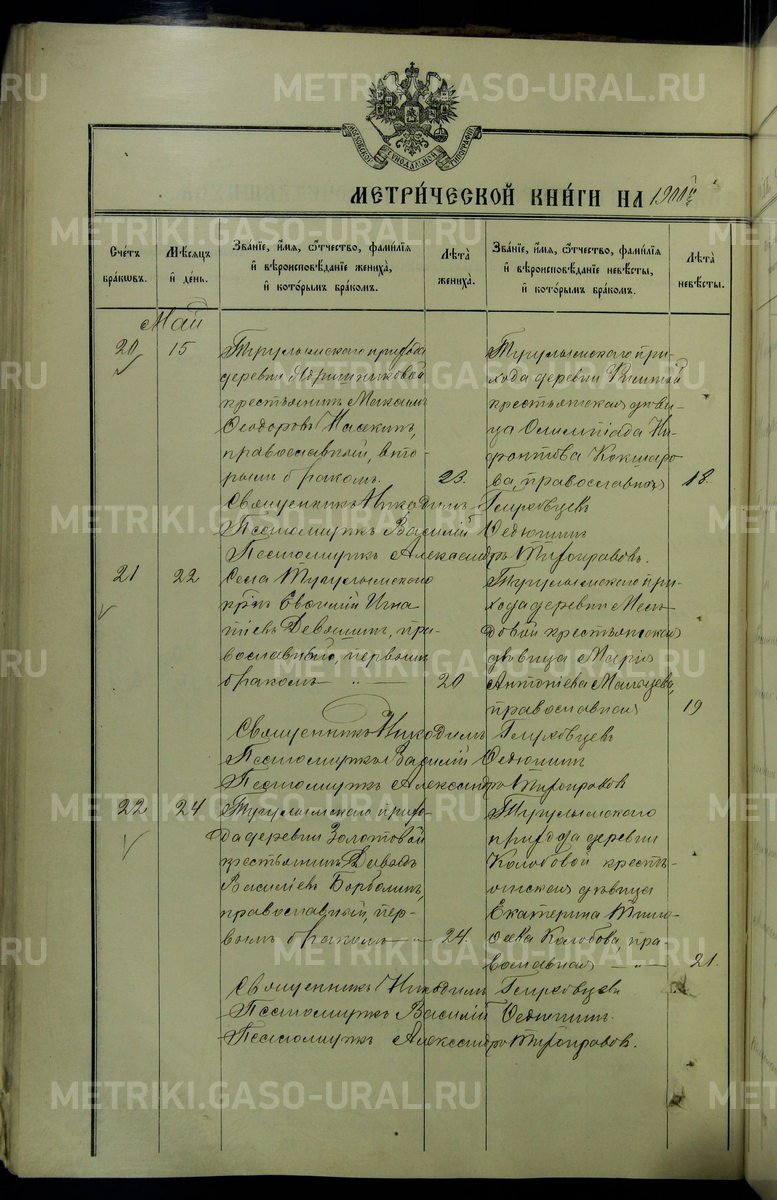 МОСКОВСКОЙ СѴНОДАЛЬНОЙ ТИПОГРАФІИ
МЕТРИ́ЧЕСКОЙ КНИ́ГИ НА 1900й
Сче́тъ бра́кωвъ.
Мѣ́сяцъ и҆ де́нь.
Зва́нїе, и҆́мя, ѻ҆́тчество, фами́лїя и҆ вѣроисповѣ́данїе жениха̀, и҆ кото́рымъ бра́комъ.
Лѣ́та жениха̀.
Зва́нїе, и҆́мя, ѻ҆́тчество, фами́лїя и҆ вѣроисповѣ́данїе невѣ́сты, и҆ кото́рымъ бра́комъ.
Лѣ́та невѣ́сты.
Май
20
15
Тугулымскаго прихода
деревни
крестьянинъ Максимъ
Ѳеодоровъ
православный, вто-
рымъ бракомъ.
23.
Тугулымскаго при-
хода деревни
крестьянская дѣви-
ца Олимпіада Ни-
фонтова Кокшаро-
ва, православная
18.
Священникъ Никодимъ
Псаломщикъ Василій Ѳедюшинъ
Псаломщикъ Александръ
21
22
Села Тугулымскаго
крнъ Евгеній Игна
тіевъ Девяшинъ, пра-
вославный, первымъ
бракомъ
20
Тугулымскаго при-
хода деревни Мед-
довой крестьянская
дѣвица Марія
Антоніева Мальцева,
православная
19
Священникъ Никодимъ
Псаломщикъ Василій Ѳедюшинъ
Псаломщикъ Александръ
22
24
Тугулымскаго прихо-
да деревни Золотовой
крестьянинъ Давидъ
Василіевъ Барболинъ,
православный, пер-
вымъ бракомъ
24.
Тугулымскаго
прихода деревни
Колобовой кресть-
янская дѣвица
Екатерина Тимо-
ѳеева Колобова, пра
вославная
21.
Священникъ Никодимъ
Псаломщикъ Василій Ѳедюшинъ.
Псаломщикъ Александръ
METRIKI.GASO-URAL.RU